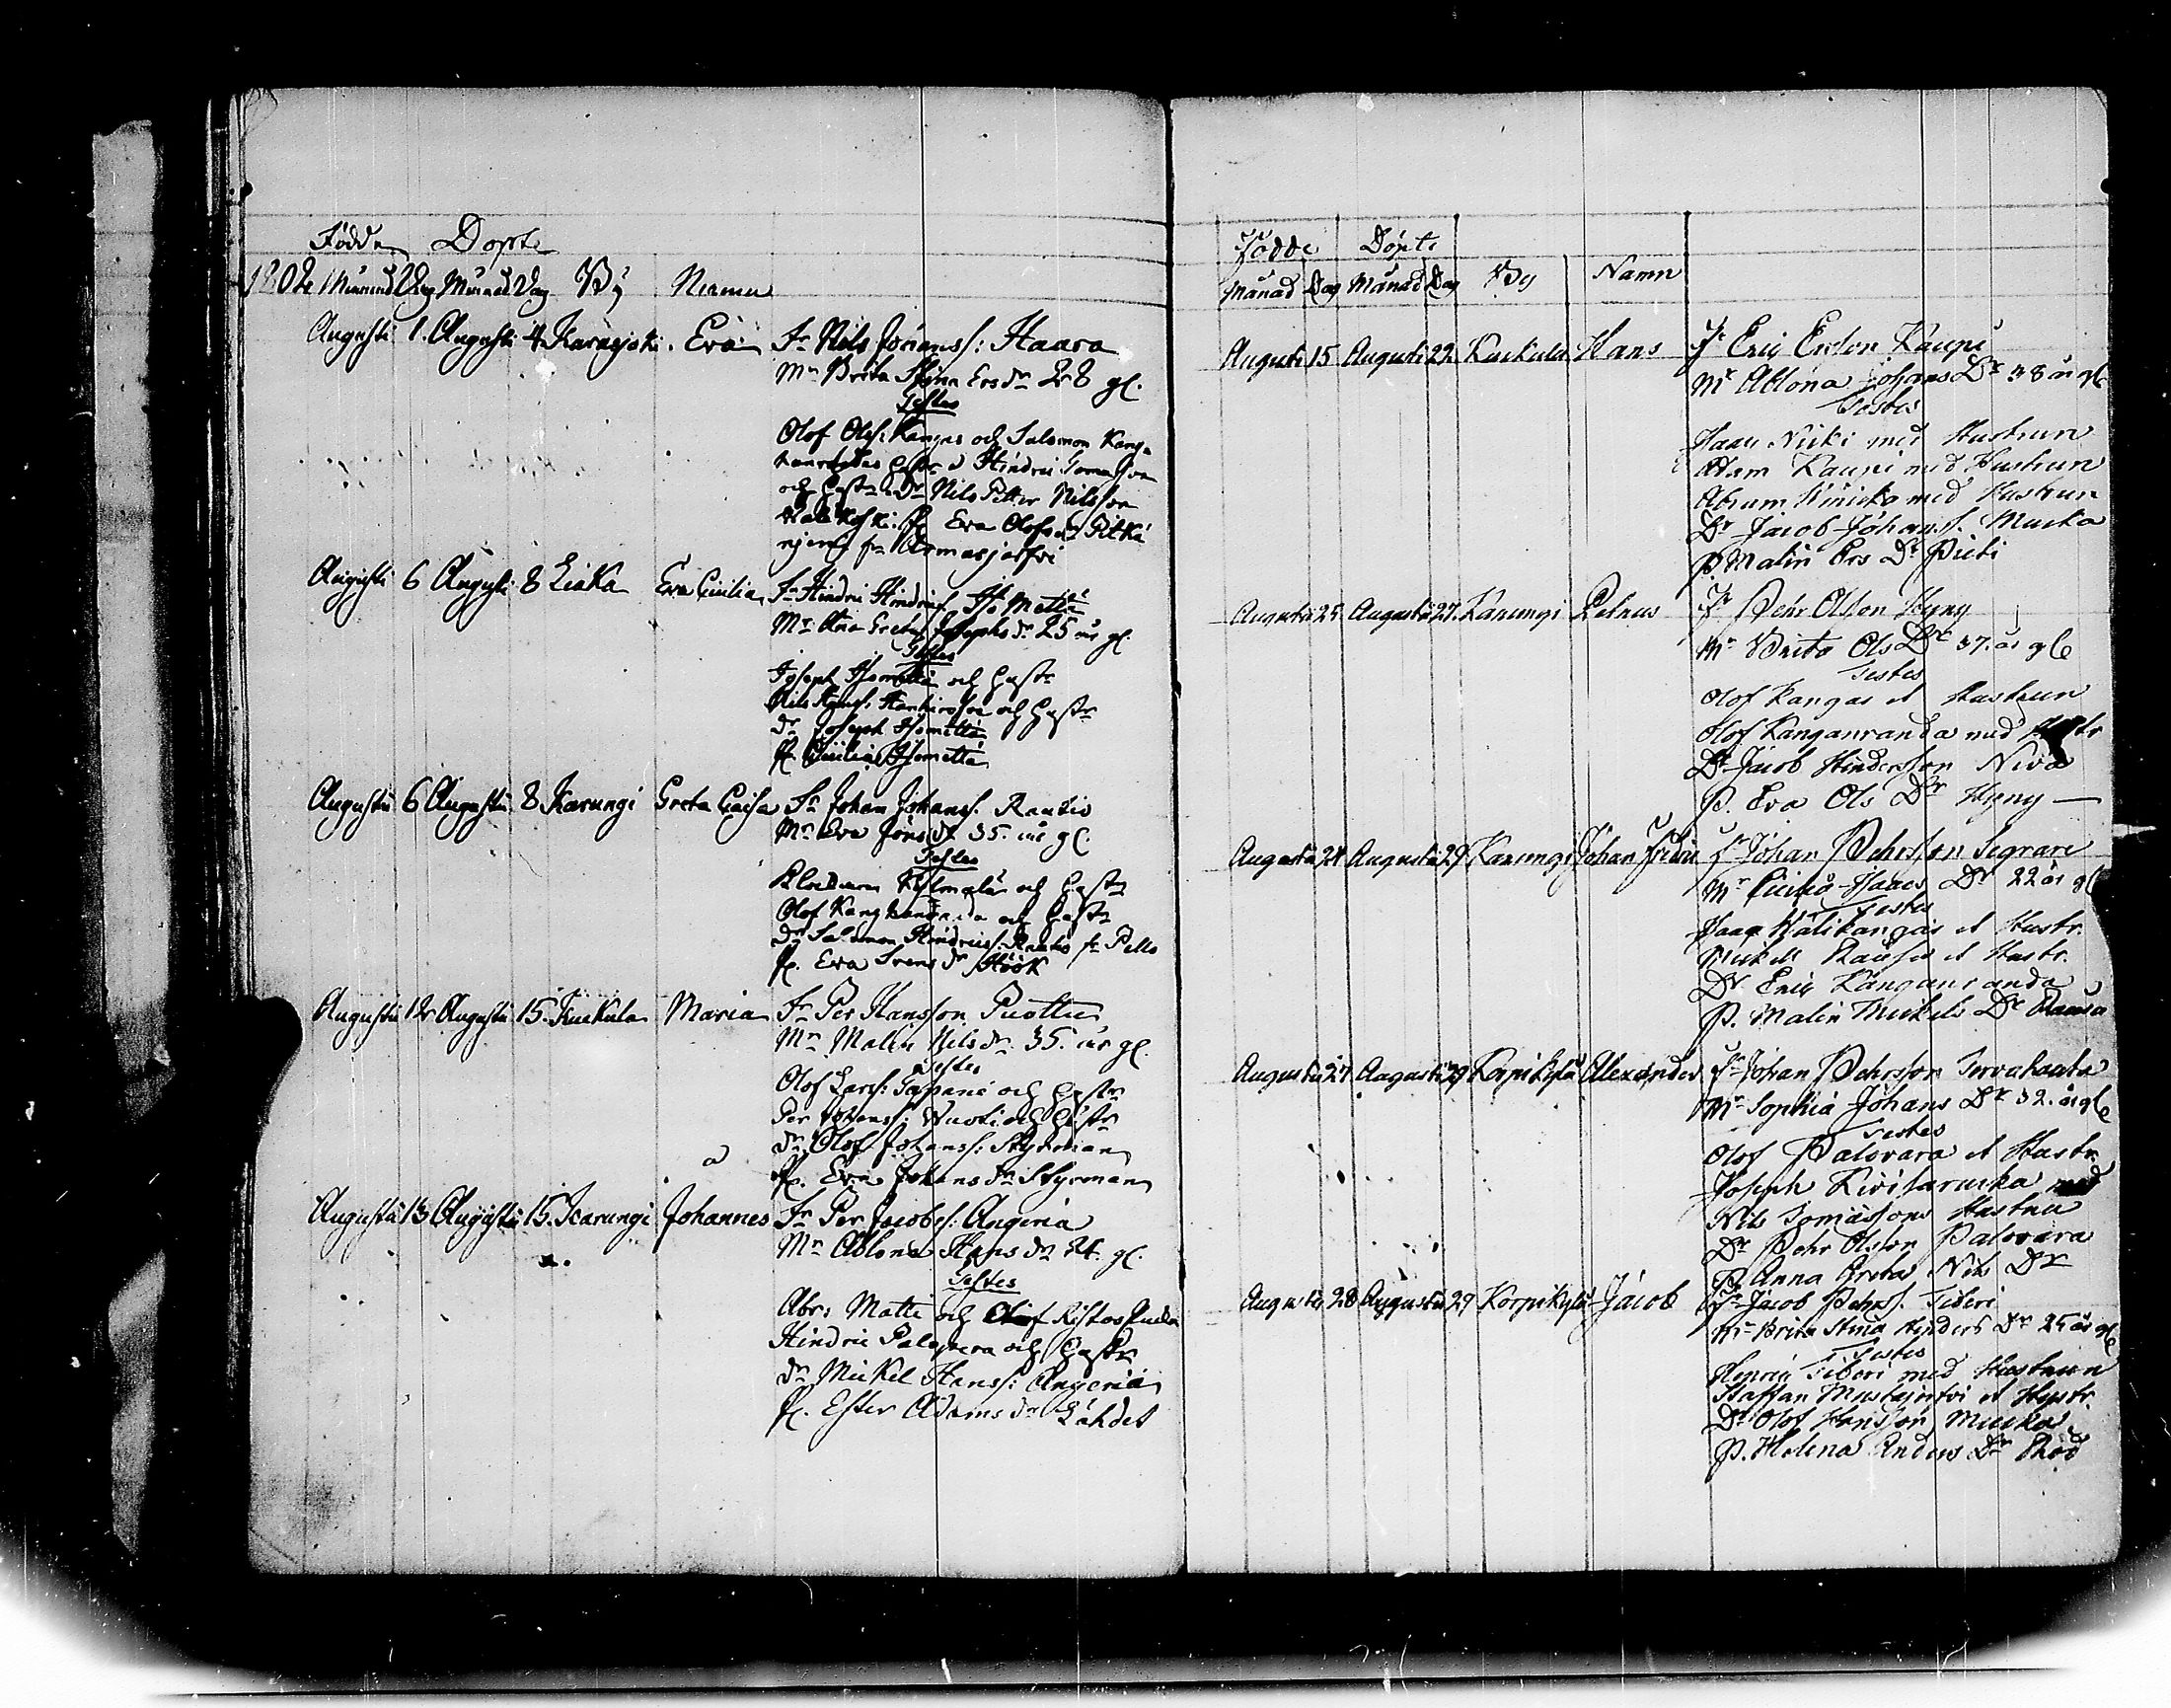 Födde Döpte
1802 Månad Dag Månad Dag By Namn
Augusti 1. Augusti 4 Karasjoki. Eva Fr Nils Jöranss: Haara
Mr Brita Stina Ers dr 28 gl.
Testes
Olof Olss: Kangas och Salomon Kang-
och Hindric
och Hustr Dr Nils Petter Nilsson
P. Eva Olofs dr Pitkä
fr Armasjerfvi
Augusti 6 Augusti 8 Liaka Eva Cicilia Fr Hindric Hindricss. Iso Metta
Mr Ana Greta Josephs dr 25 år gl.
Testes
Joseph Isometta och Hustr
Nils och Hustr
dr Joseph Isometta
P. Cicilia Isometta
Augusti 6 Augusti 8 Karungi Greta Caisa Fr Johan Johanss. Rautio
Mr Eva Jöns dr 35. år gl.
Testes
och Hustr
Olof och Hustr
dr Salomon Hindricss: Rautio fr Pello
P. Eva Svens dr Höök
Augusti 12 Augusti 15. Kuckula Maria Fr Per Hansson Puotti
Mr Malin Nils dr 35. år gl.
Testes
Olof Larss: Tapani och Hustr
Per Johanss: Vuoti och Hustr
dr Olof Johanss: Styrman
P. Eva Johans dr Styrman
Augusti 13 Augusti 15. Karungi Johannes Fr Per Jacobss: Angeria
Mr Ablona Hans dr 24. gl.
Testes
Abr: Matti och Olof
Hindric Palovara och Hustr
dr Mickel Hanss: Angeria
P. Ester Adams dr Lähdet
Födde Döpte
Månad Dag Månad Dag By Namn
Augusti 15 Augusti 22 Kuckula Hans Fr Eric Ersson Kaupi
Mr Ablona Johans Dr 38 år gl
Testes
Isaac Nicki med Hustrun
Adam Kaupi med Hustrun
Abram med Hustrun
Dr Jacob Johanss. Mucka
P. Malin Ers Dr Pieti
Augusti 25 Augusti 27. Karungi Petrus Fr Pehr Olsson Hyny
Mr Brita Ols Dr 37. år gl
Testes
Olof Kangas et Hustrun
Olof Kanganranda med Hustr
Dr Jacob Hindersson Niva
P. Eva Ols Dr Hyny
Augusti 24 Augusti 29 Karungi Johan Fredric Fr Johan Pehrsson Segrare
Mr Caisa Isaacs Dr 22 år gl
Testes
Isaac Välikangas et Hustr.
Mickel Rausa et Hustr.
Dr Eric Kanganranda
P. Malin Mickels Dr Rausa
Augusti 27 Augusti 29 Korpikylä Alexander Fr Johan Pehrsson Tervahauta
Mr Sophia Johans Dr 32. år gl
Testes
Olof Palovara et Hustr.
Joseph Kivitaruska med
Nils Tomassons Hustru
Dr Pehr Olsson Palovara
P. Anna Greta Nils Dr
Augusti 28 Augusti 29 Korpikylä Jacob Fr Jacob Pehrss. Tiberi
Mr Brita Stina Hinders Dr 25 år gl
Testes
Henric Tiberi med Hustrun
Staffan Mustajerfvi et Hustr.
Dr Olof Hansson Mucka
P. Helena Anders Dr